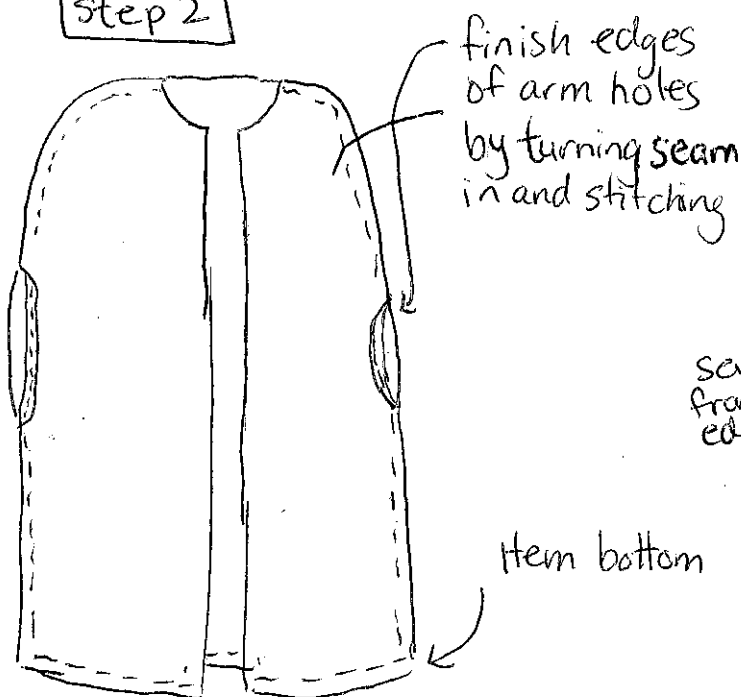 Step 2
finish edges
of arm holes
by turning seam
in and stitching
Hem bottom